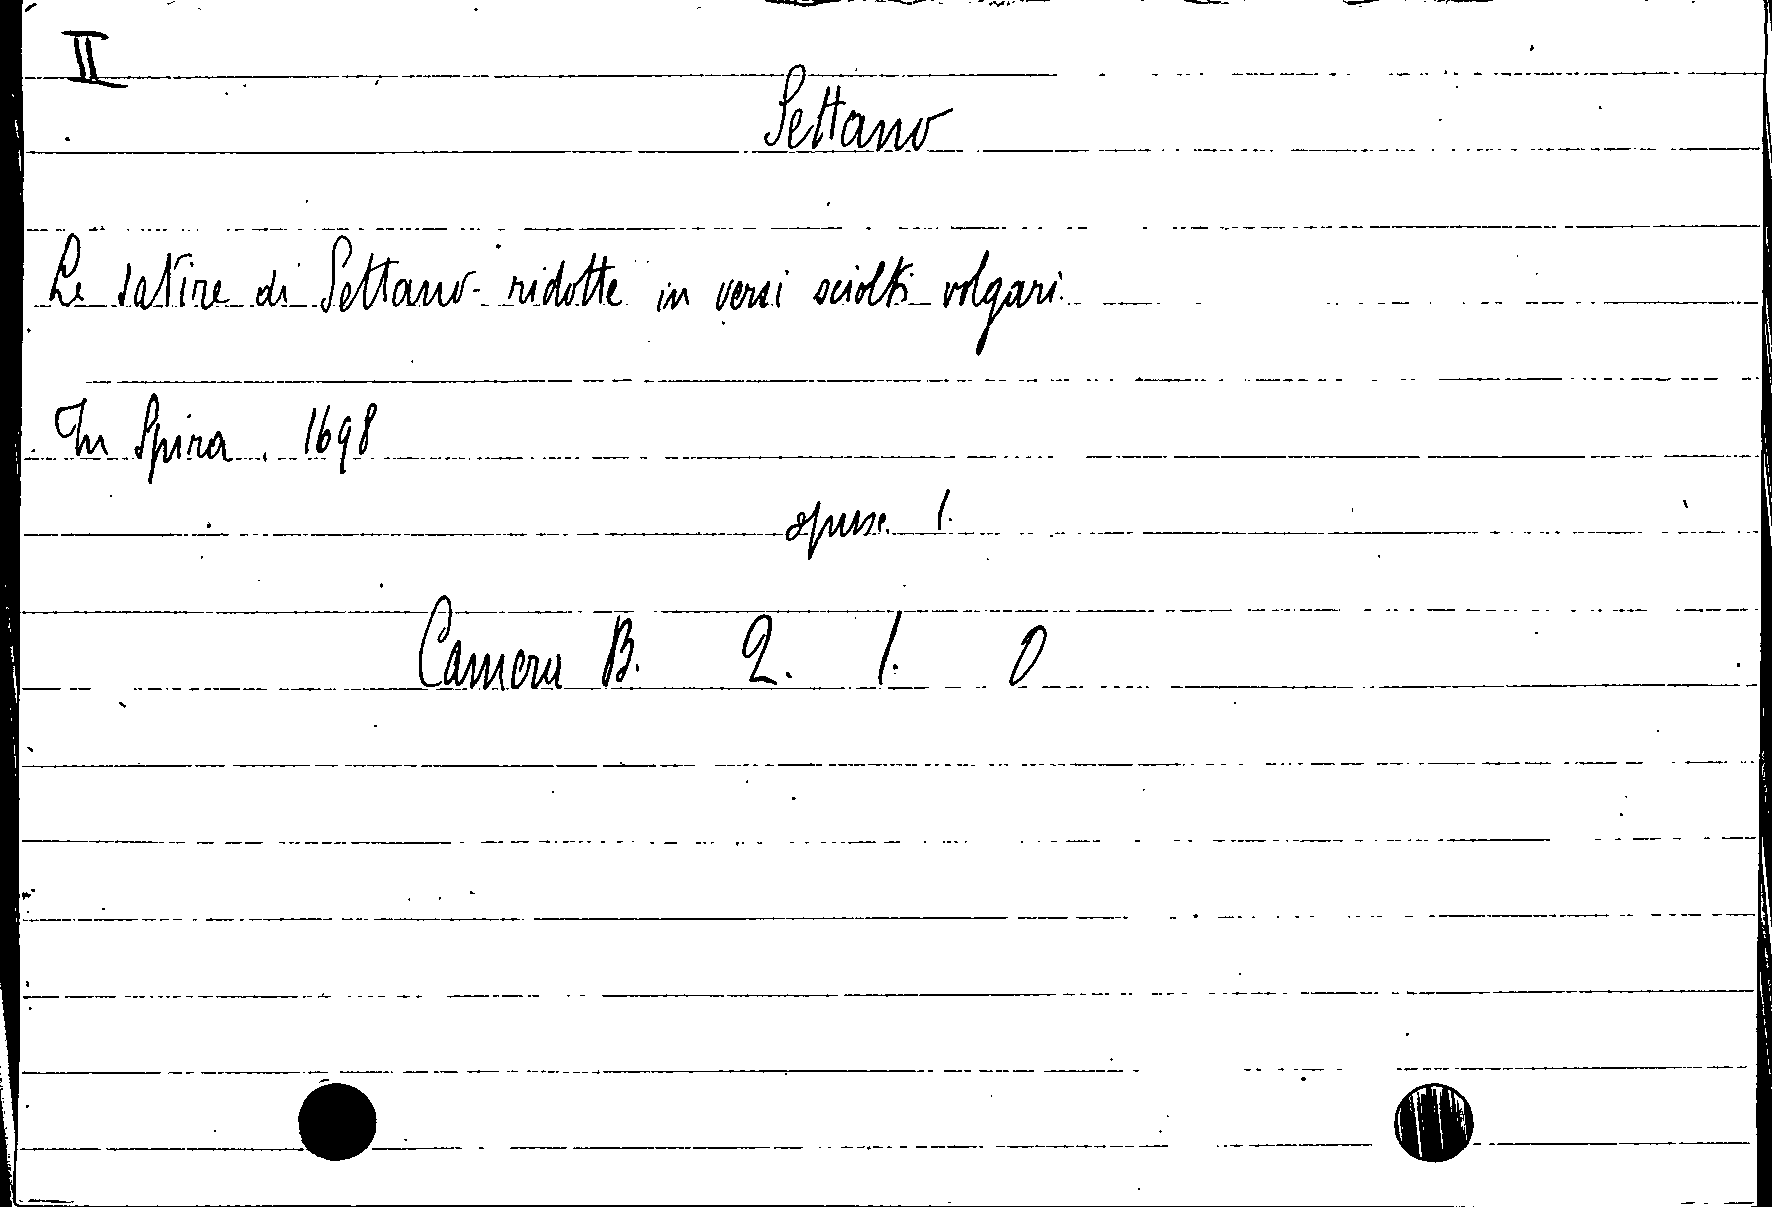 II
Settano
Le satire di Settano ridotte in versi sciolti volgari.
In Spira. 1698
opusc. 1.
Camera B. 2. 1. 0